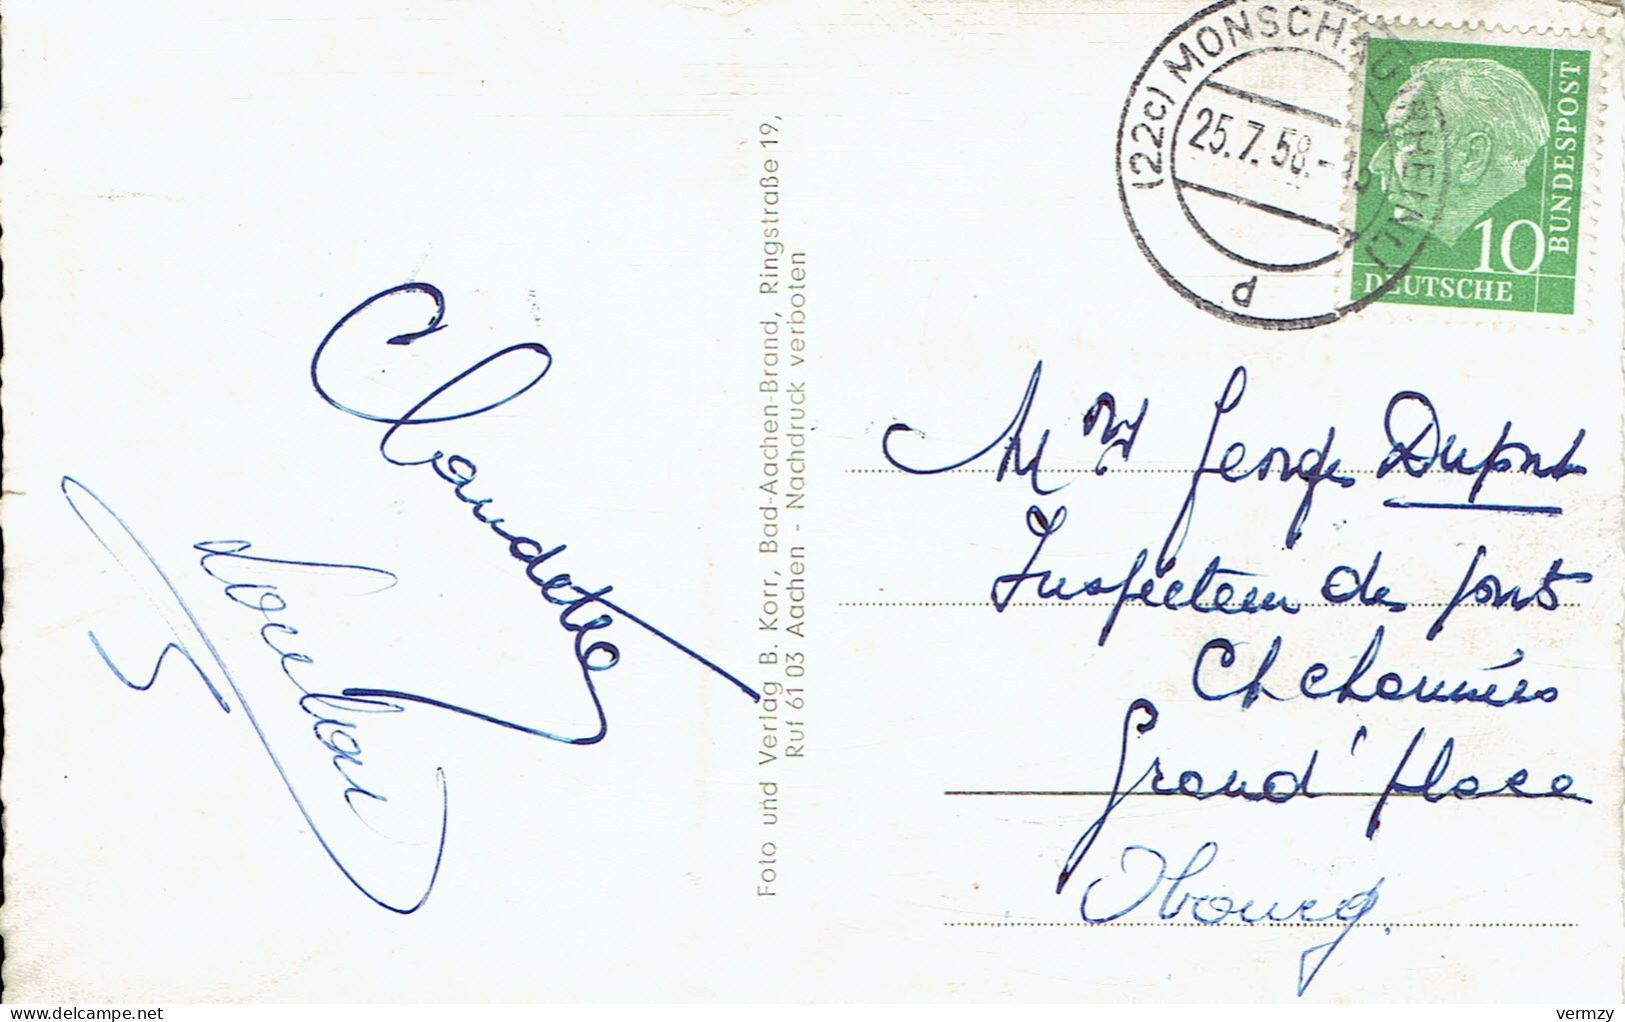 Claudette
(22c) MONSCHAU (RHEINL)
25.7.58.-
P
10
DEUTSCHE
BUNDESPOST
Foto und Verlag B. Korr, Bad-Aachen-Brand, Ringstraße 19,
Ruf 61 03 Aachen - Nachdruck verboten
Mr Georges Dupont
Inspecteur des ponts
Ch chaussées
Grand' place
vermzy